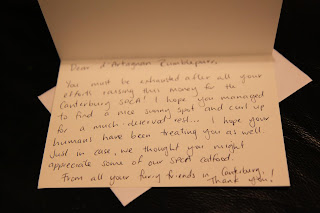 Dear d'Artagnan Rumblepurr,
You must be exhausted after all your
efforts raising this money for the
Canterbury SPCA! I hope you managed
to find a nice sunny spot and curl up
for a much-deserved rest... I hope your
humans have been treating you as well.
Just in case, we thought you might
appreciate some of our SPCA catfood.
From all your furry friends in Canterbury.
Thank you!